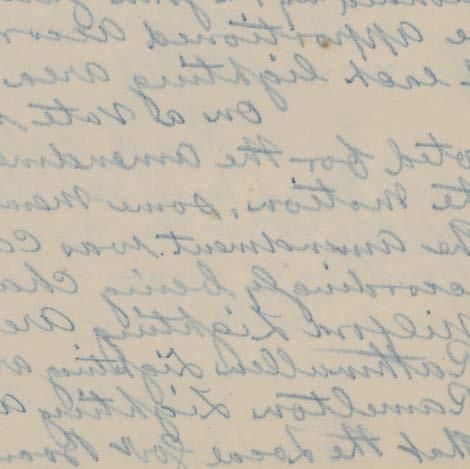 e apportioned accor
each lighting area
On a vote
oted for the amendme
te motion, some mem
the amendment was ca
ccordingly being cha
Milford Lighting Are
Rathmullen Lighting ar
Ramelton Lighting a
that the Local Gov Boar